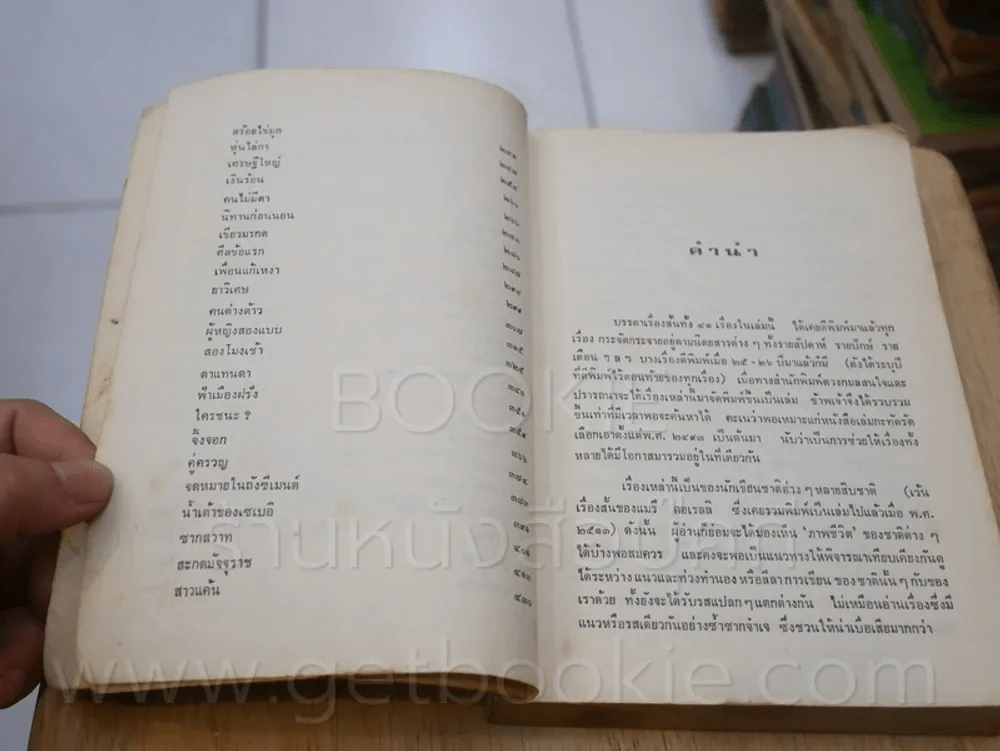 สร้อยไข่มุก
หุ่นไล่กา
เศรษฐีใหญ่
เงินร้อน
คนไม่มีตา
นิทานก่อนนอน
เขี้ยวมรกต
ศีลข้อแรก
เพื่อนแก้เหงา
ยาวิเศษ
คนต่างด้าว
ผู้หญิงสองแบบ
สองโมงเช้า
ตาแทนตา
ฟ้าเมืองฝรั่ง
ใครชนะ ?
จิ้งจอก
คู่ครวญ
จดหมายในถังซีเมนต์
น้ำเต้าของเซเบอิ
ซากสวาท
สะกดมัจจุราช
สาวแค้น
๒๖๖
๒๘๗
๓๐๗
๓๑๕
๓๒๕
๓๖๖
๓๗๔
๓๘๓
๔๑๓
๔๓๐
คำนำ
บรรดาเรื่องสั้นทั้ง ๔๑ เรื่องในเล่มนี้ ได้เคยตีพิมพ์มาแล้วทุก
เรื่อง กระจัดกระจายอยู่ตามนิตยสารต่าง ๆ ทั้งรายสัปดาห์ รายปักษ์ ราย
เดือน ฯ ล ฯ บางเรื่องตีพิมพ์เมื่อ ๒๕ - ๒๖ ปีมาแล้วก็มี (ดังได้ระบุปี
ที่ตีพิมพ์ไว้ตอนท้ายของทุกเรื่อง) เมื่อทางสำนักพิมพ์ดวงกมลสนใจและ
ปรารถนาจะได้เรื่องเหล่านี้มาจัดพิมพ์ขึ้นเป็นเล่ม ข้าพเจ้าจึงได้รวบรวม
ขึ้นเท่าที่มีเวลาพอจะค้นหาได้ คะเนว่าพอเหมาะแก่หนังสือเล่มกะทัดรัด
เลือกเอาตั้งแต่พ.ศ. ๒๔๙๓ เป็นต้นมา นับว่าเป็นการช่วยให้เรื่องทั้ง
หลายได้มีโอกาสมารวมอยู่ในที่เดียวกัน
เรื่องเหล่านี้เป็นของนักเขียนชาติต่าง ๆ หลายสิบชาติ (เว้น
เรื่องสั้นของแมรี่ คอเรลลี ซึ่งเคยรวมพิมพ์เป็นเล่มไปแล้วเมื่อ พ.ศ.
๒๕๑๓) ดังนั้น ผู้อ่านก็ย่อมจะได้มองเห็น 'ภาพชีวิต' ของชาติต่าง ๆ
ได้บ้างพอสมควร และคงจะพอเป็นแนวทางให้พิจารณาเทียบเคียงกันดู
ได้ระหว่าง แนวและท่วงทำนอง หรือลีลา การเขียน ของ ชาตินั้น ๆ กับของ
เราด้วย ทั้งยังจะได้รับรสแปลก ๆ แตกต่างกัน ไม่เหมือนอ่านเรื่องซึ่งมี
แนวหรือรสเดียวกันอย่างซ้ำซากจำเจ ซึ่งชวนให้น่าเบื่อเสียมากกว่า
BOOKIE
ร้านหนังสือบุ๊คกี้
www.getbookie.com